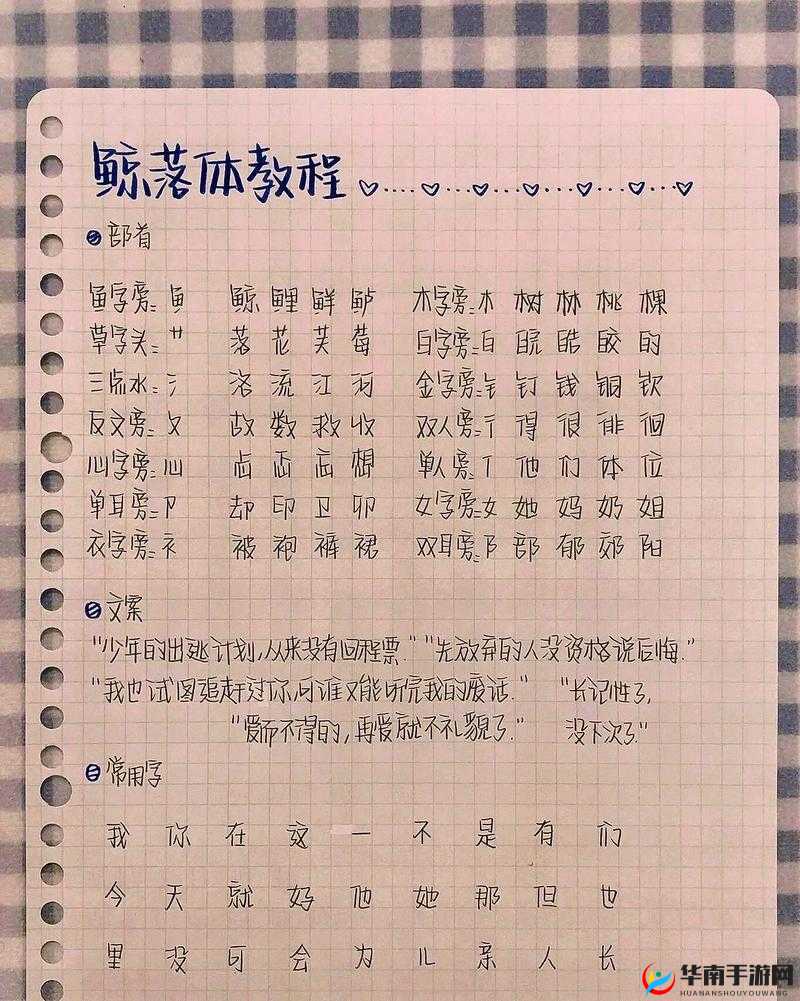 鲸落体教程
部首
鱼字旁: 鱼 鲸 鲤 鲜 鲈 木字旁: 木 树 林 桃 棵
草字头: 艹 落 花 芙 莓 白字旁: 白 皖 皓 皎 的
三点水: 氵 洛 流 江 河 金字旁: 钅 钉 钱 铜 钦
反文旁: 攵 故 数 救 收 双人旁: 彳 得 很 徘 徊
心字旁: 心 志 忑 忘 想 单人旁: 亻 他 们 体 位
单耳旁: 卩 却 印 卫 卯 女字旁: 女 她 妈 奶 姐
衣字旁: 衤 被 袍 裤 裙 双耳旁: 阝 部 郁 郊 阳
文案
"少年的出逃计划,从来没有回程票." "先放弃的人没资格说后悔."
"我也试图追赶过你,可谁又能听完我的废话." "长记性了,
"爱而不得的,再爱就不礼貌了." 没下次了."
常用字
我 你 在 这 一 不 是 有 们
今 天 就 好 他 她 那 但 也
里 没 可 会 为 儿 亲 人 长
华南手游网
HUANANSHOUYOUWANG